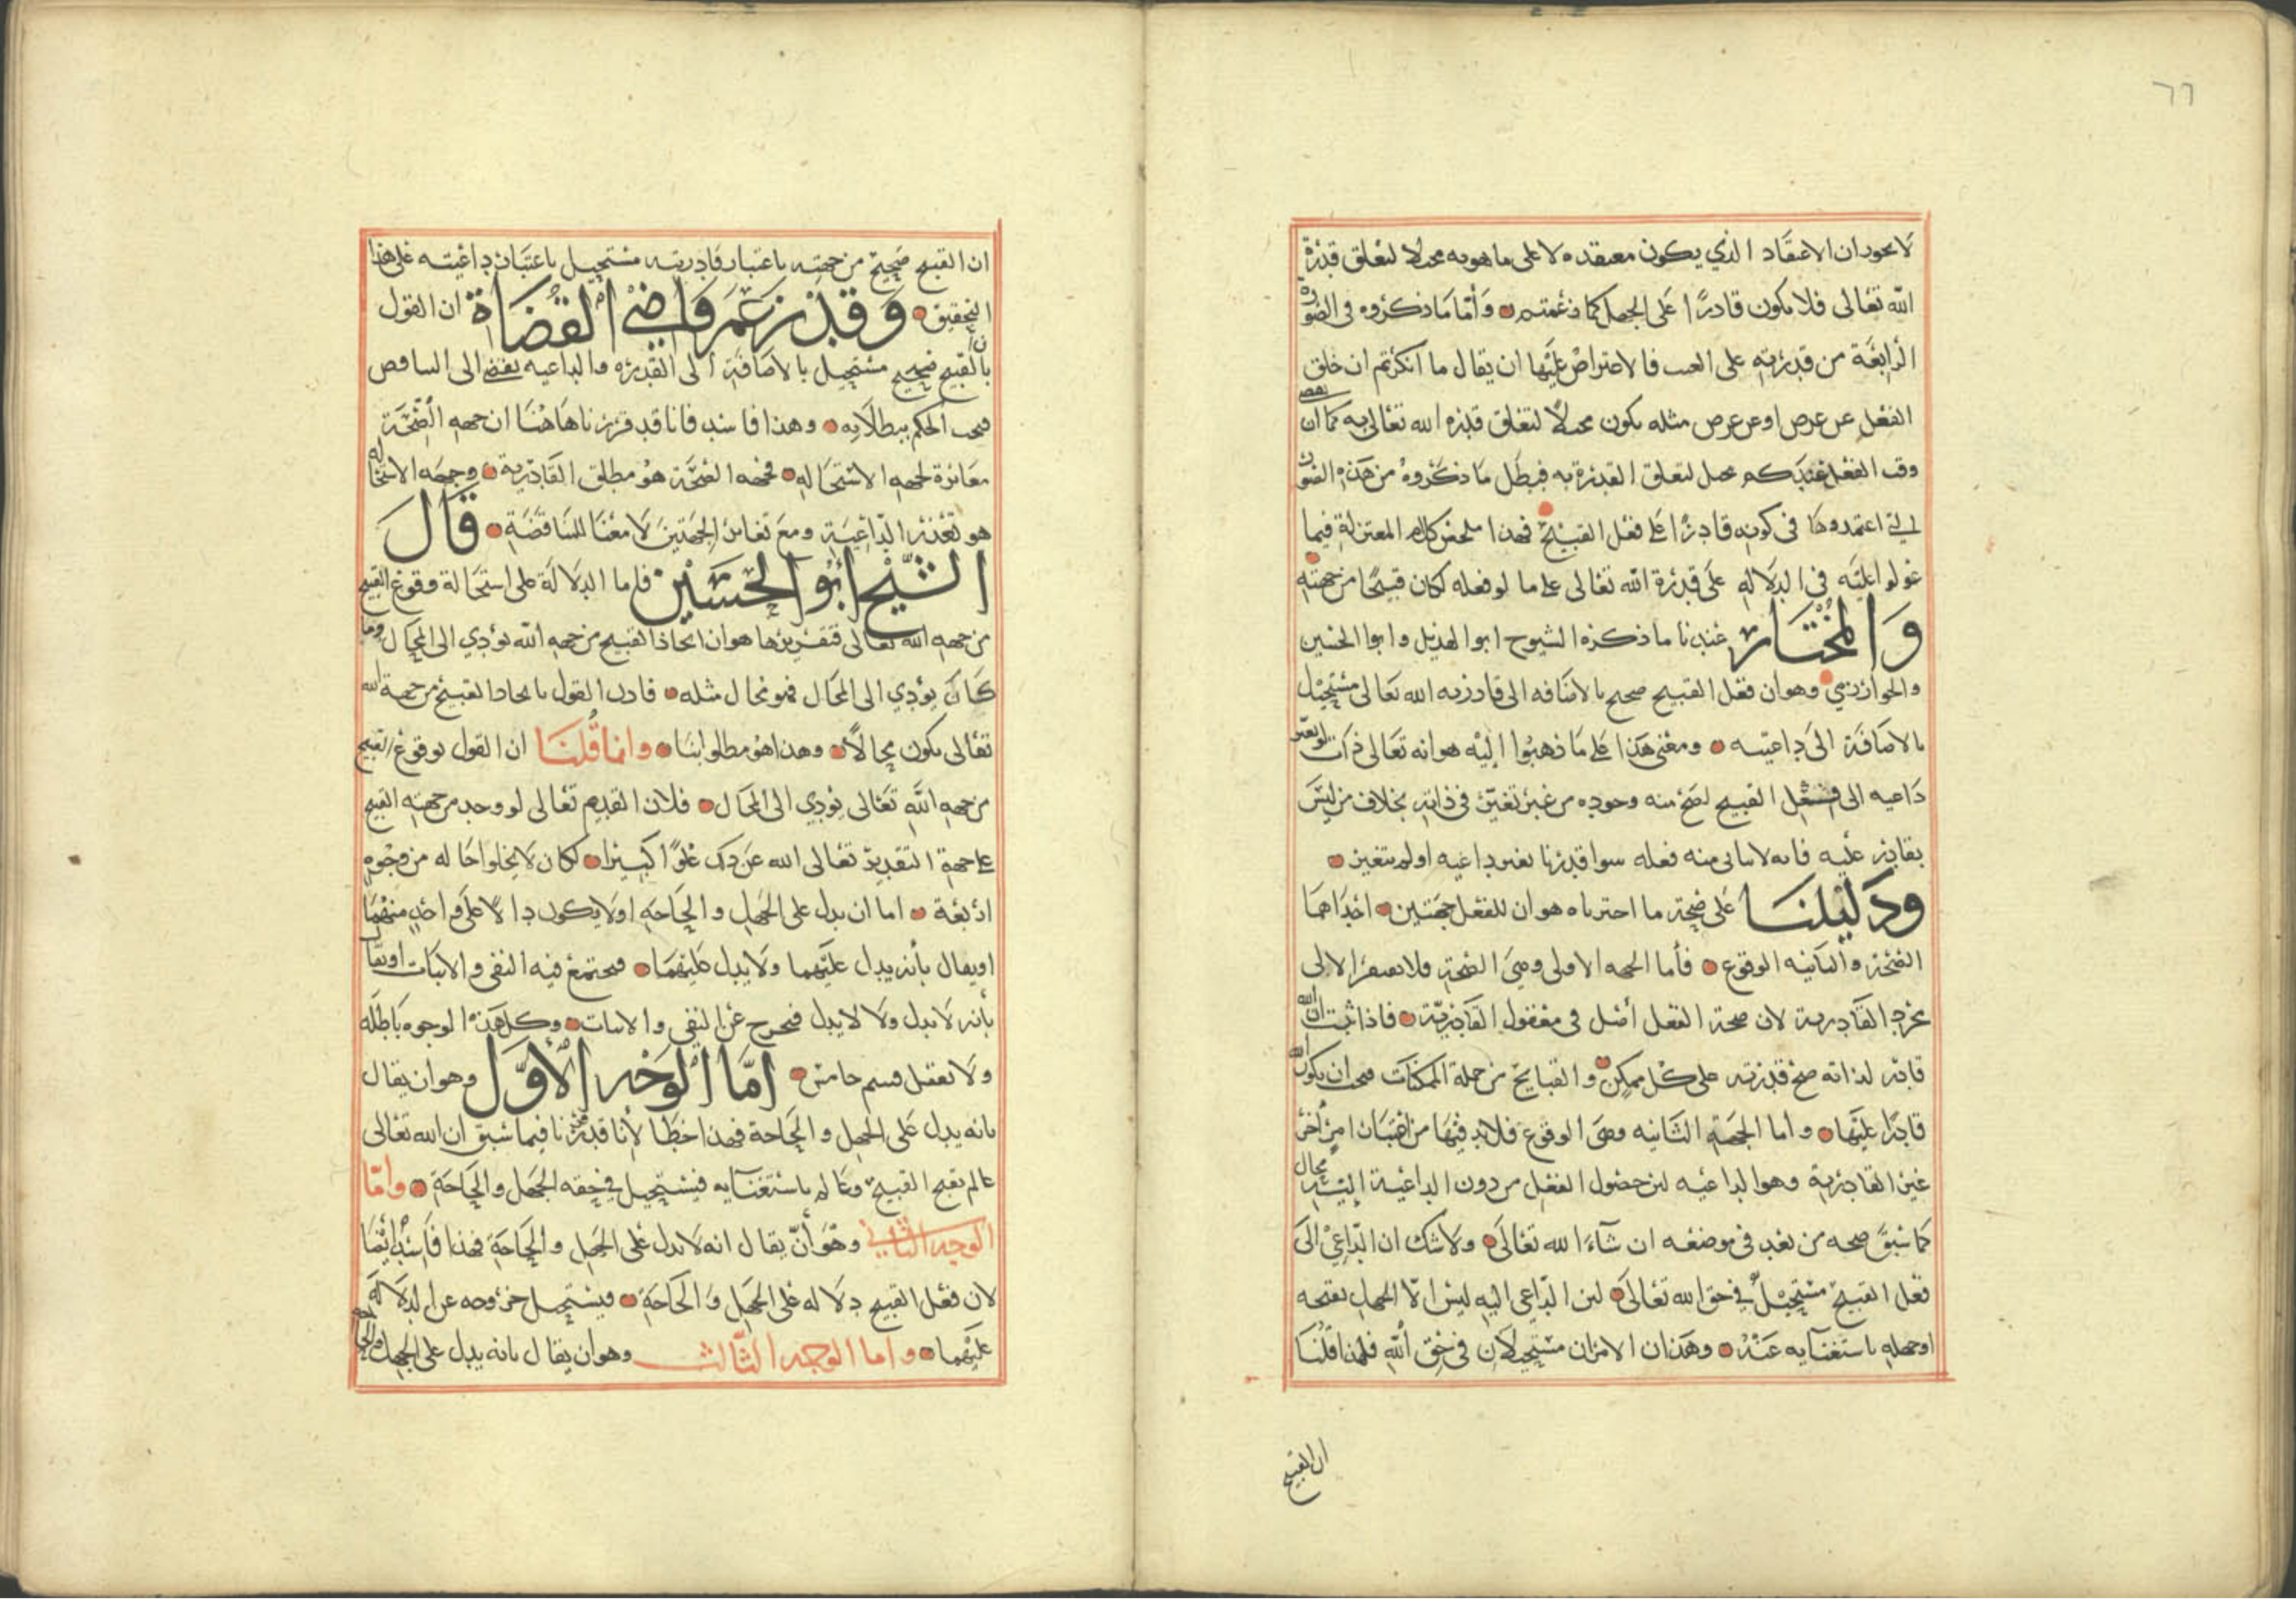 ٦٦
لا يجوز ان الاعتقاد الذي يكون معتقده لا على ما هو به محلا لتعلق قدرة
الله تعالى فلا يكون قادرًا على الجهل كما زعمتم وأما ما ذكروه في الصورة
الرابعة من قدرته على العبث فالاعتراض عليها ان يقال ما انكرتم ان خلق
الفعل عن عرض او عن عرض مثله يكون محلًا لتعلق قدرة الله تعالى به كما ان بعض
وقت الفعل عندكم محل لتعلق القدرة به فبطل ما ذكروه من هذه الصور
التي اعتمدوها في كونه قادرًا على فعل القبيح فهذا ملخص كلام المعتزلة فيما
عولوا عليه في الدلالة على قدرة الله تعالى على ما لو فعله لكان قبيحًا من جهته
والمختار عندنا ما ذكره الشيوخ ابو الهذيل وابو الحسين
والخوارزمي وهو ان فعل القبيح صحيح بالاضافة الى قادريه الله تعالى مستحيل
بالاضافة الى داعيته ومعنى هذا على ما ذهبوا إليه هو انه تعالى لو تغير
داعيه الى فعل القبيح لصح منه وجوده من غير تغير في ذاته بخلاف من ليس
بقادر عليه فانه لا يتأتى منه فعله سوا قدرنا تغير داعيه او لم يتغير
ودليلنا على صحة ما اخترناه هو ان للفعل جهتين احداهما
الصحة والثانيه الوقوع فأما الجهه الاولى وهي الصحة فلا تفتقر الا الى
مجرد القادرية لان صحة الفعل أصل في معقول القادرية فاذا ثبت ان الله
قادر لذاته صح قدرته على كل ممكن والقبايح من جملة الممكنات فيجب ان يكون الله
قادرًا عليها واما الجهة الثانيه وهي الوقوع فلا بد فيها من اعتبار امر اخر
غير القادرية وهو الداعيه لان حصول الفعل من دون الداعية اليه محال
كما سبق صحه من بعد في موضعه ان شاء الله تعالى ولا شك ان الداعي الى
فعل القبيح مستحيل في حق الله تعالى لان الداعي اليه ليس الا الجهل بقبحه
او جهله باستغنايه عنه وهذان الامران مستحيلان في حق الله فلهذا قلنا
ان القبيح
ان القبيح صحيح من جهته باعتبار قادريته مستحيل باعتبار داعيته على هذا
التحقيق وقد زعم قاضي القضاة ان القول
بأن القبيح صحيح مستحيل بالاضافة الى القدره والداعيه يفضي الى التناقص
فيجب الحكم ببطلانه وهذا فاسد فانا قد قررنا هاهنا ان جهه الصحة
مغايرة لجهه الاستحاله فجهه الصحة هو مطلق القادرية وجهه الاستحاله
هو تعذر الداعية ومع تغاير الجهتين لا معنا للمناقضة قال
الشيخ ابو الحسين فاما الدلالة على استحالة وقوع القبيح
من جهه الله تعالى فتقريرها هو ان ايجاد القبيح من جهه الله يؤدي الى المحال وما
كان يؤدي الى المحال فهو محال مثله فاذن القول بايجاد القبيح من جهة الله
تعالى يكون محالًا وهذا هو مطلوبنا وانما قلنا ان القول بوقوع القبيح
من جهه الله تعالى يؤدي الى المحال فلان القديم تعالى لو وجد من جهته القبيح
على جهة التقدير تعالى الله عن ذلك علوًا كبيرا لكان لا يخلوا حاله من وجوه
اربعة اما ان يدل على الجهل والحاجة اولا يكون دالًا على واحد منهما
او يقال بأنه يدل عليهما ولا يدل عليهما فيجتمع فيه النفي والاثبات او يقال
بأنه لا يدل ولا لا يدل فيخرج عن النفي والاثبات وكل هذه الوجوه باطله
ولا يعقل قسم خامس امّا الوجه الأول وهو ان يقال
بانه يدل على الجهل والحاجة فهذا خطأ لأنا قد قررنا فيما سبق ان الله تعالى
عالم بقبح القبيح وعالم باستغنايه فيستحيل في حقه الجهل والحاجة وامّا
الوجه الثاني وهو أن يقال انه لا يدل على الجهل والحاجة فهذا فاسد أيضا
لان فعل القبيح دلاله على الجهل والحاجة فيستحيل خروجه عن الدلالة
عليهما واما الوجه الثالث وهو ان يقال بانه يدل على الجهل والحاجه